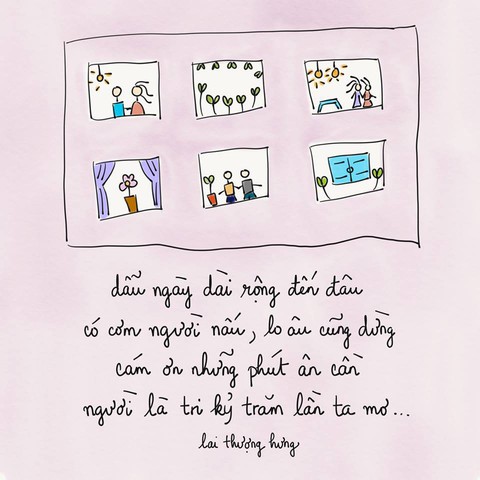 dẫu ngày dài rộng đến đâu
có cơm người nấu, lo âu cũng dừng
cám ơn những phút ân cần
người là tri kỷ trăm lần ta mơ...
lai thượng hưng